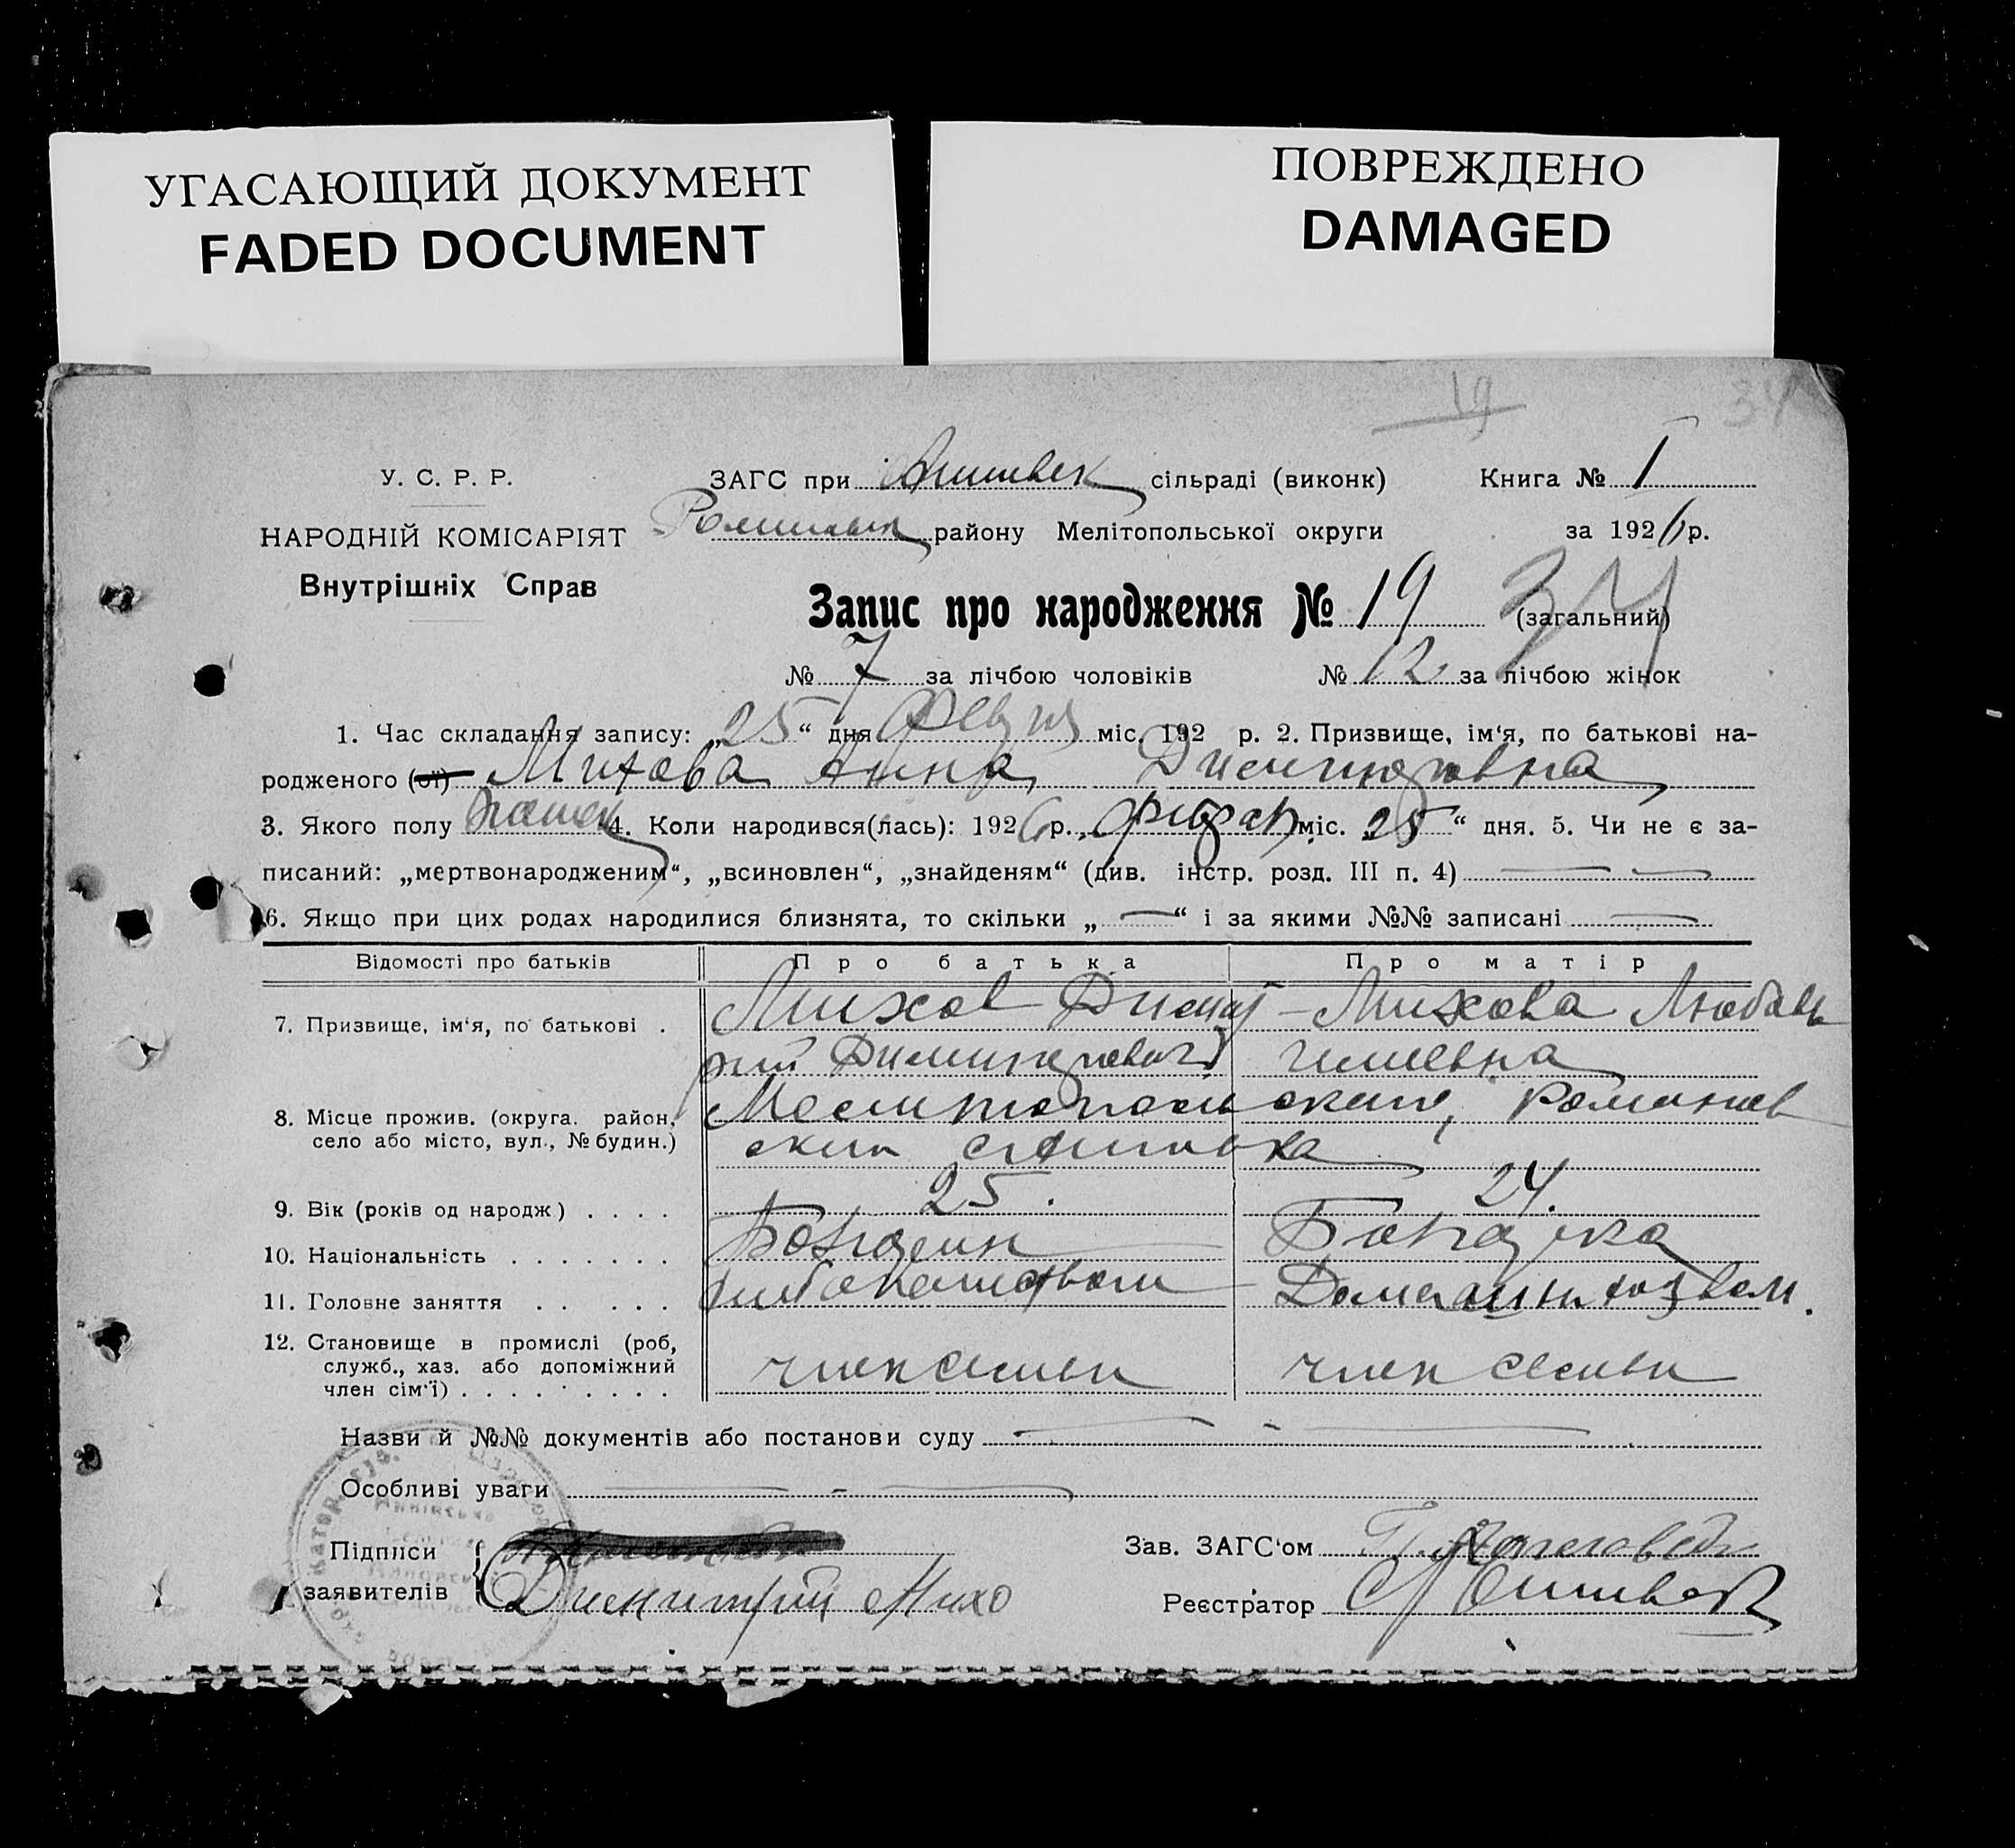 УГАСАЮЩИЙ ДОКУМЕНТ
FADED DOCUMENT
ПОВРЕЖДЕНО
DAMAGED
19
34
У. С. Р. Р.
НАРОДНІЙ КОМІСАРІЯТ
Внутрішніх Справ
ЗАГС при сільраді (виконк)
Книга № 1
району Мелітопольської округи
за 1926 р.
Запис про народження № 19 (загальний)
34
№ 7 за лічбою чоловіків № 12 за лічбою жінок
1. Час складання запису: „25“ дня міс. 192 р. 2. Призвище, ім‘я, по батькові на-
родженого (ої) Михова Анна Димитровна
3. Якого полу 4. Коли народився(лась): 1926 р. міс. „25“ дня. 5. Чи не є за-
писаний: „мертвонародженим“, „всиновлен“, „знайденям“ (див. інстр. розд. III п. 4) —
6. Якщо при цих родах народилися близнята, то скільки „—“ і за якими №№ записані —
Відомості про батьків Про батька Про матір
7. Призвище, ім‘я, по батькові . Михов Димит- Михова Любовь
рий Димитрович
8. Місце прожив. (округа. район,
село або місто, вул., № будин.)
Мелитопольский, Романов
ский
9. Вік (років од народж) . . . . 25. 24.
10. Національність . . . . . . . Болгарин Болгарка
11. Головне заняття . . . . . Хлебопашеством Домашним хозвом.
12. Становище в промислі (роб,
служб., хаз. або допоміжний
член сім‘ї) . . . . . . . . . член семьи член семьи
Назви й №№ документів або постанови суду —
Особливі уваги —
Підписи
заявителів
Димитрий Михо
Зав. ЗАГС‘ом
Реєстратор